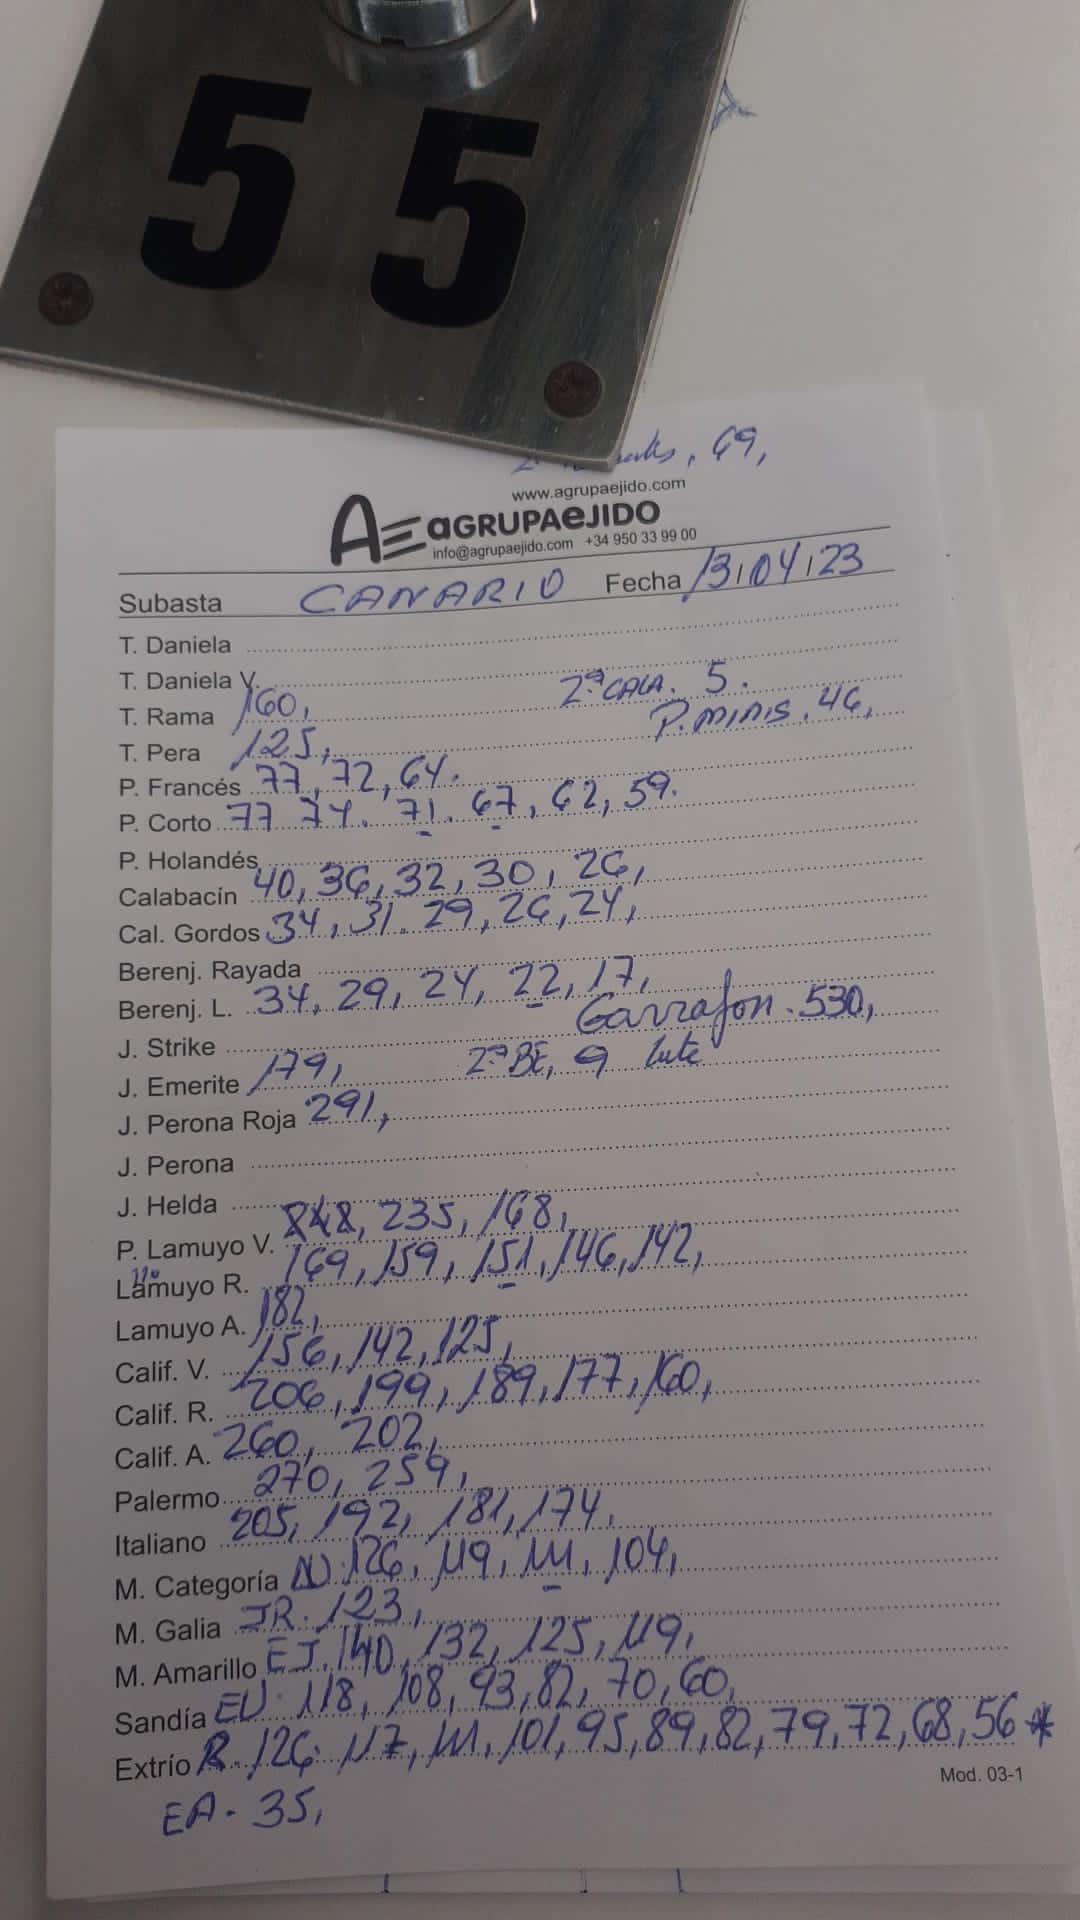 55
69,
www.agrupaejido.com
AE aGRUPAeJIDO
info@agrupaejido.com +34 950 33 99 00
Subasta CANARIO Fecha 13/04/23
T. Daniela
T. Daniela V.
T. Rama 160, 2ª CALA. 5.
T. Pera 125, P. MINIS. 46,
P. Francés 77, 72, 64.
P. Corto 77 74. 71. 67, 62, 59.
P. Holandés
Calabacín 40, 36, 32, 30, 26,
Cal. Gordos 34, 31. 29, 26, 24,
Berenj. Rayada
Berenj. L. 34, 29, 24, 22, 17,
J. Strike Garrafon. 530,
J. Emerite 179, 2ª BE, 9
J. Perona Roja 291,
J. Perona
J. Helda
P. Lamuyo V. 248, 235, 168,
Lamuyo R. 169, 159, 151, 146, 142,
Lamuyo A. 182,
Calif. V. 156, 142, 125,
Calif. R. 206, 199, 189, 177, 160,
Calif. A. 260, 202,
Palermo 270, 259,
Italiano 205, 192, 181, 174,
M. Categoría N. 126, 119, 111, 104,
M. Galia JR. 123,
M. Amarillo EJ. 140, 132, 125, 119,
Sandía EU. 118, 108, 93, 82, 70, 60,
Extrío R. 126. 117, 111, 101, 95, 89, 82, 79, 72, 68, 56 *
Mod. 03-1
EA. 35,